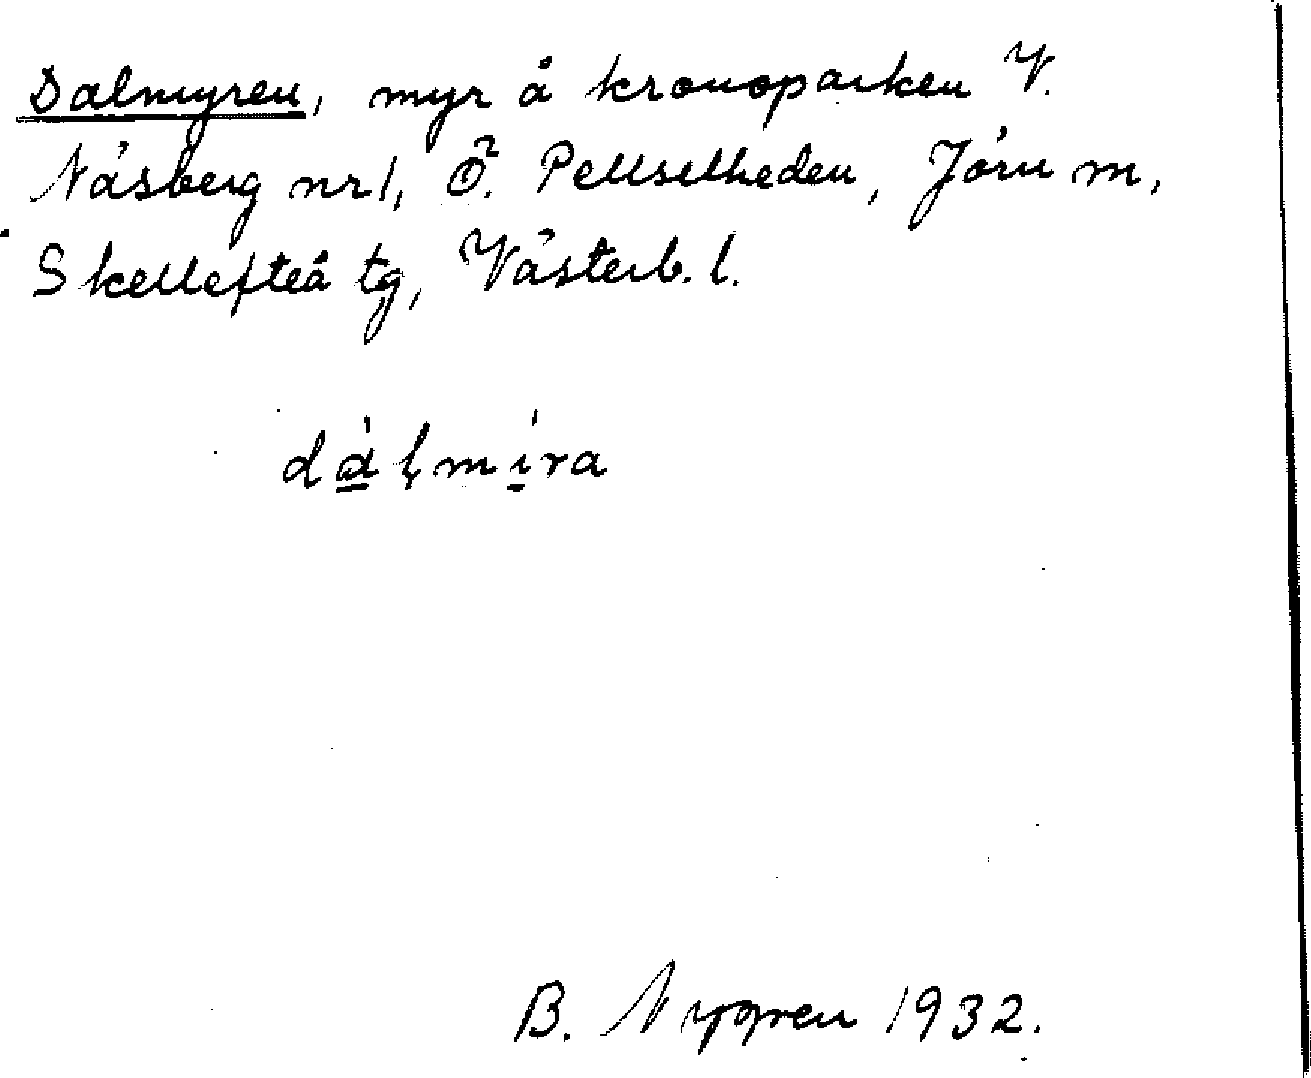 Dalmyren, myr å kronoparken V.
Näsberg nr 1, Ö. Pellselheden, Jörn m,
Skellefteå tg, Västerb. l.
dàḷmíra
B. Nygren 1932.